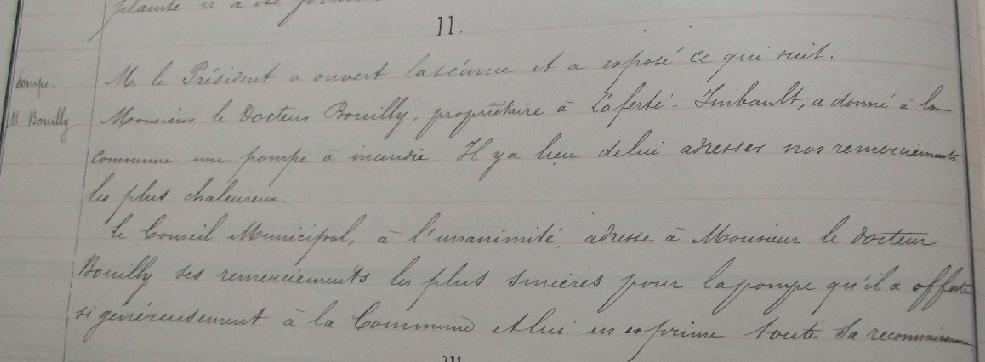 plainte
II.
Pompe. M. le Président a ouvert la séance et a exposé ce qui suit.
M. Bouilly Monsieur le Docteur Bouilly, propriétaire à Laferté-Imbault, a donné à la
commune une pompe à incendie. Il y a lieu de lui adresser nos remerciements
les plus chaleureux.
Le Conseil Municipal, à l'unanimité, adresse à Monsieur le docteur
Bouilly ses remerciements les plus sincères pour la pompe qu'il a offerte
si généreusement à la Commune et lui en exprime toute sa reconnaissance
III